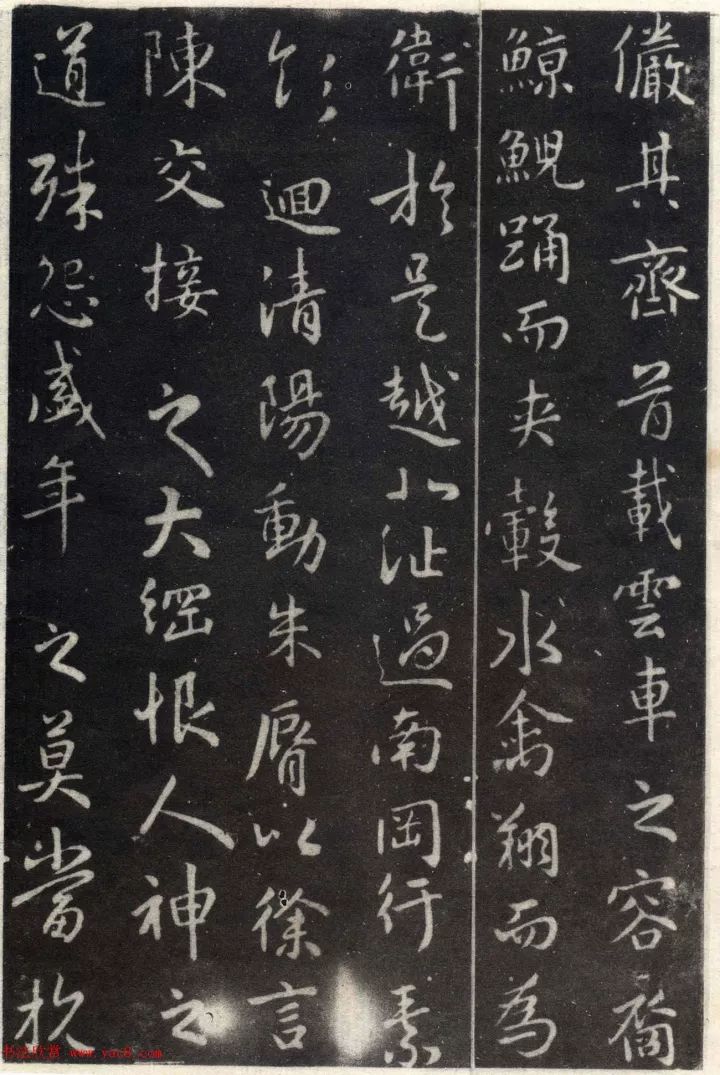 儼其齊首載雲車之容裔
鯨鯢踊而夾轂水禽翔而為
衛於是越北沚過南岡紆素
領迴清陽動朱脣以徐言
陳交接之大綱恨人神之
道殊怨盛年之莫當抗
书法欣赏 www.yac8.com